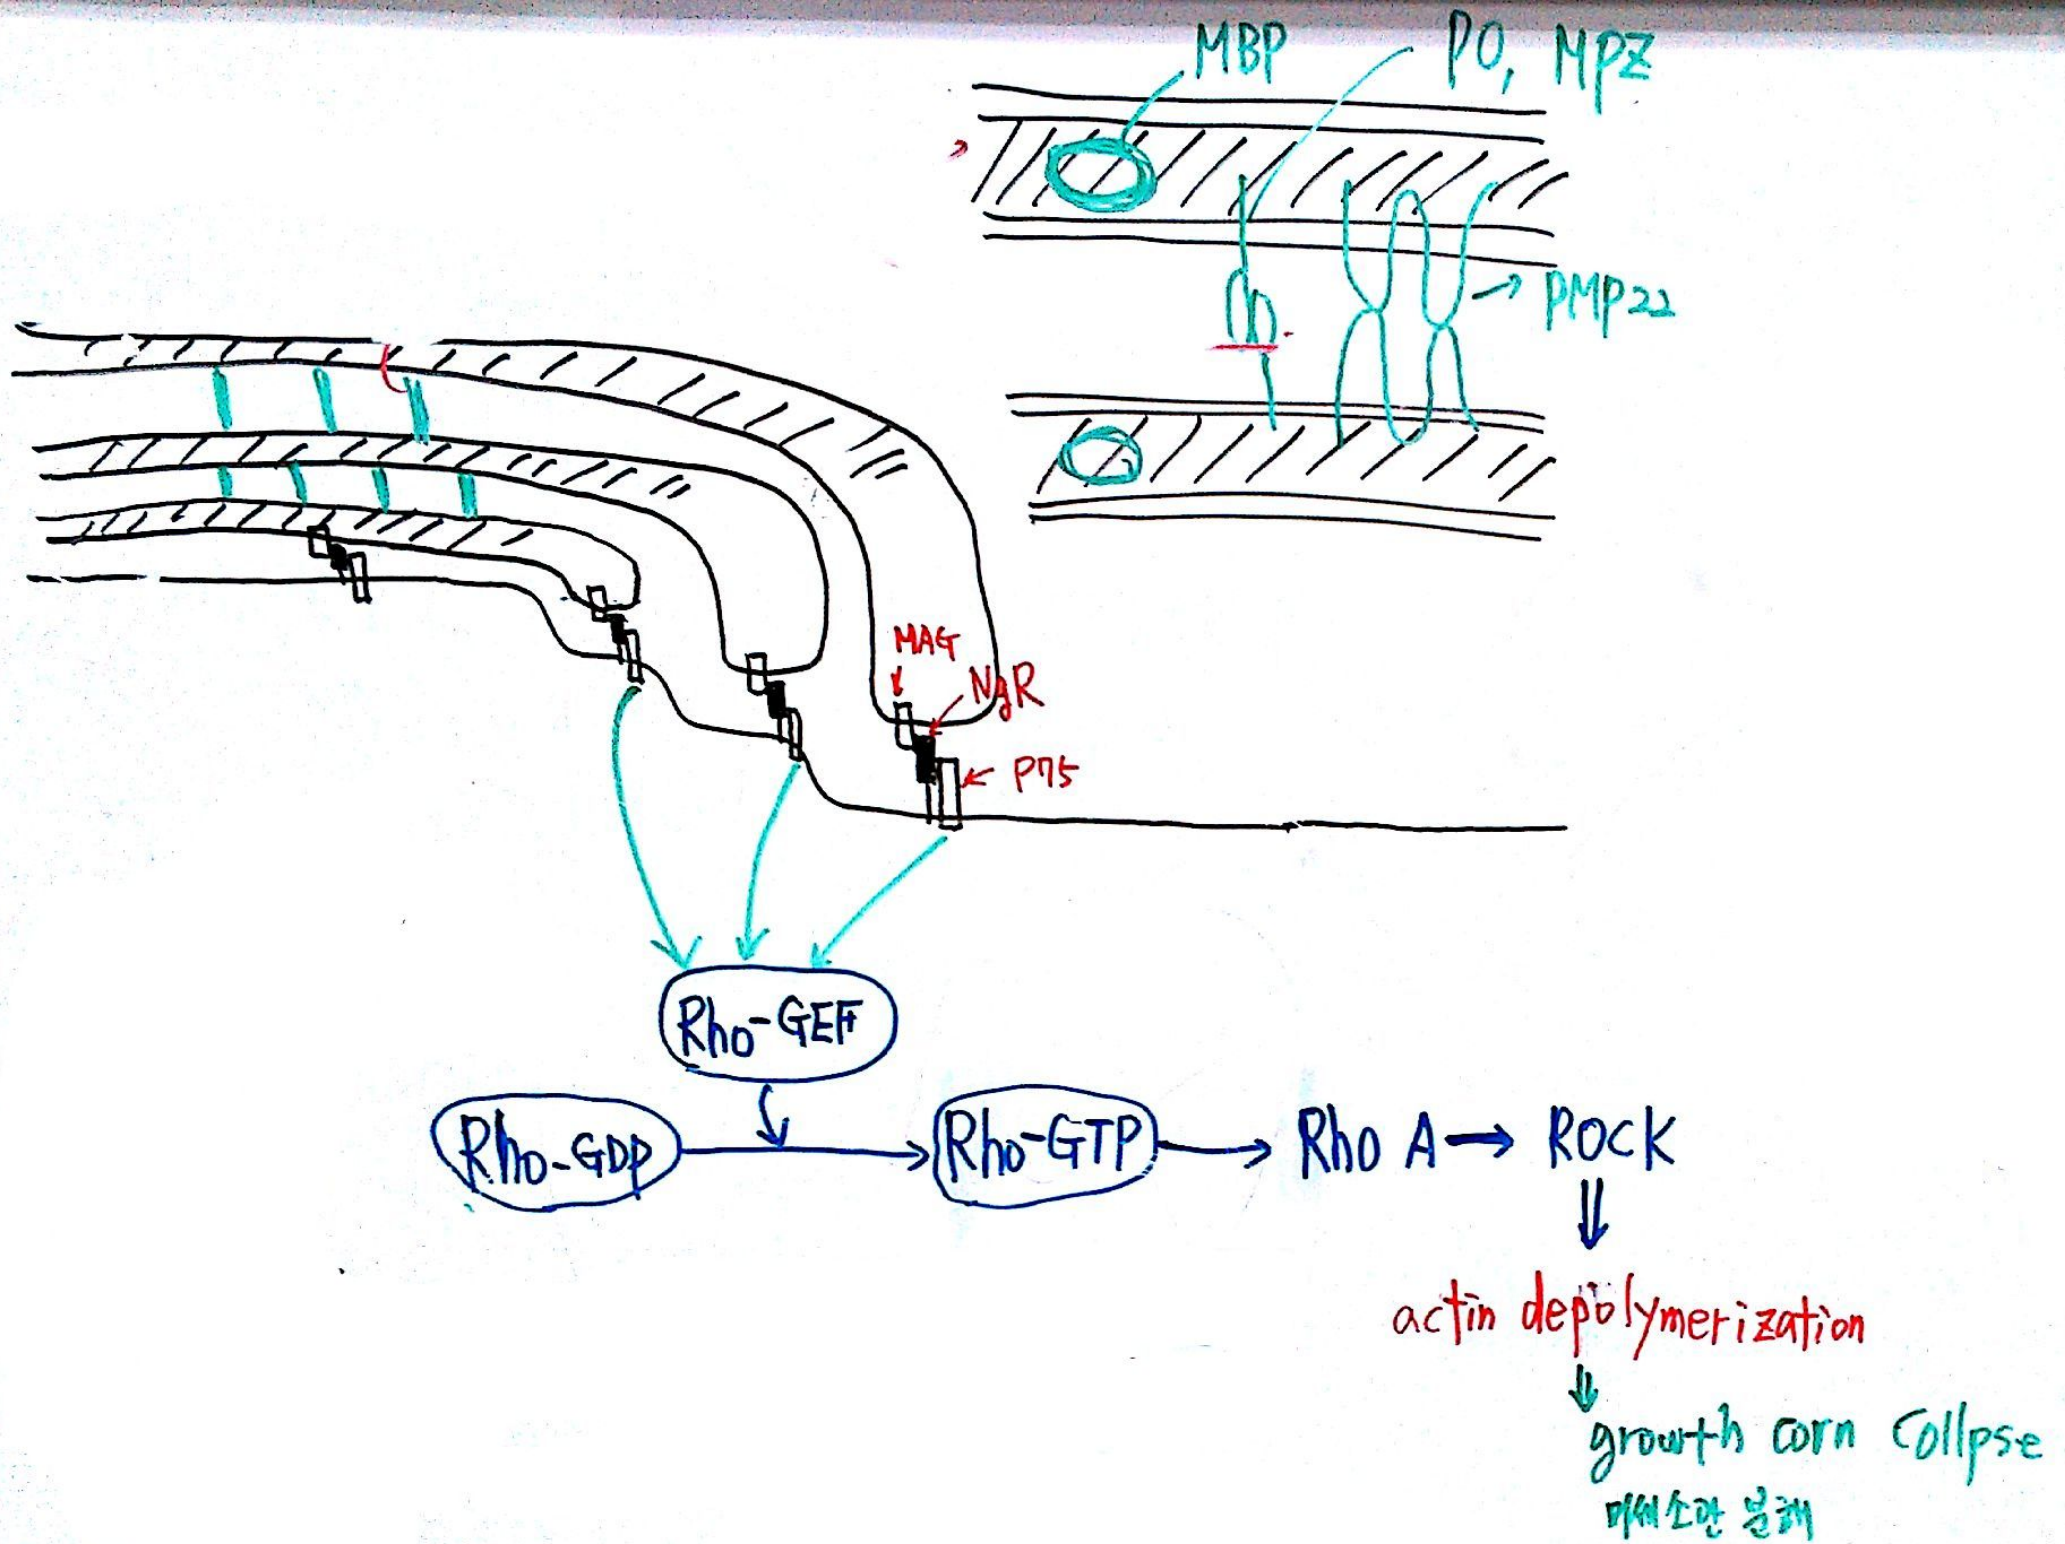 MBP
P0, MPZ
PMP22
MAG
NgR
P75
Rho-GEF
Rho-GDP
Rho-GTP
Rho A
ROCK
actin depolymerization
growth corn Collpse
미세소관 분해